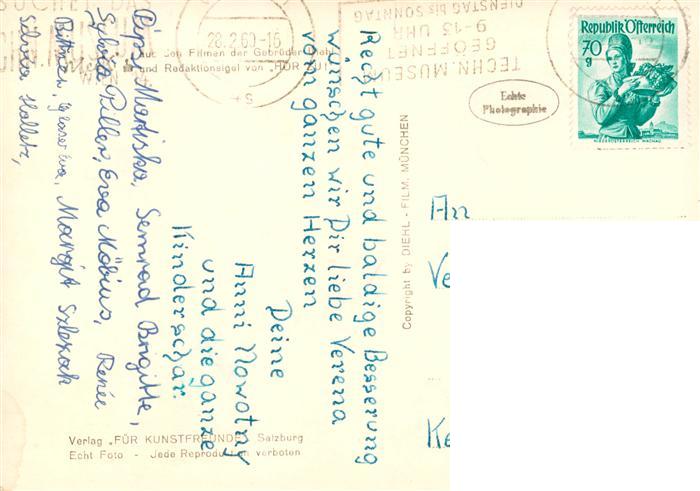 TECHN. MUSEUM
GEÖFFNET
9-13 UHR
DIENSTAG bis SONNTAG
28.2.60-16
Republik Österreich
70
g
NIEDERÖSTERREICH WACHAU
Echte
Photographie
aus den Filmen der Gebrüder Diehl
und Redaktionsigel von „HÖR ZU"
Recht gute und baldige Besserung
wünschen wir Dir liebe Verena
vom ganzen Herzen
Deine
Anni Nowotny
und die ganze
Kinderschar.
Semrad Brigitte,
Sylvia Piller, Eva Möbius, Renée
Eva, Margit Szlezak
An
Ve
Ke
Copyright by DIEHL - FILM. MÜNCHEN
Verlag „FÜR KUNSTFREUNDE", Salzburg
Echt Foto - Jede Reproduktion verboten